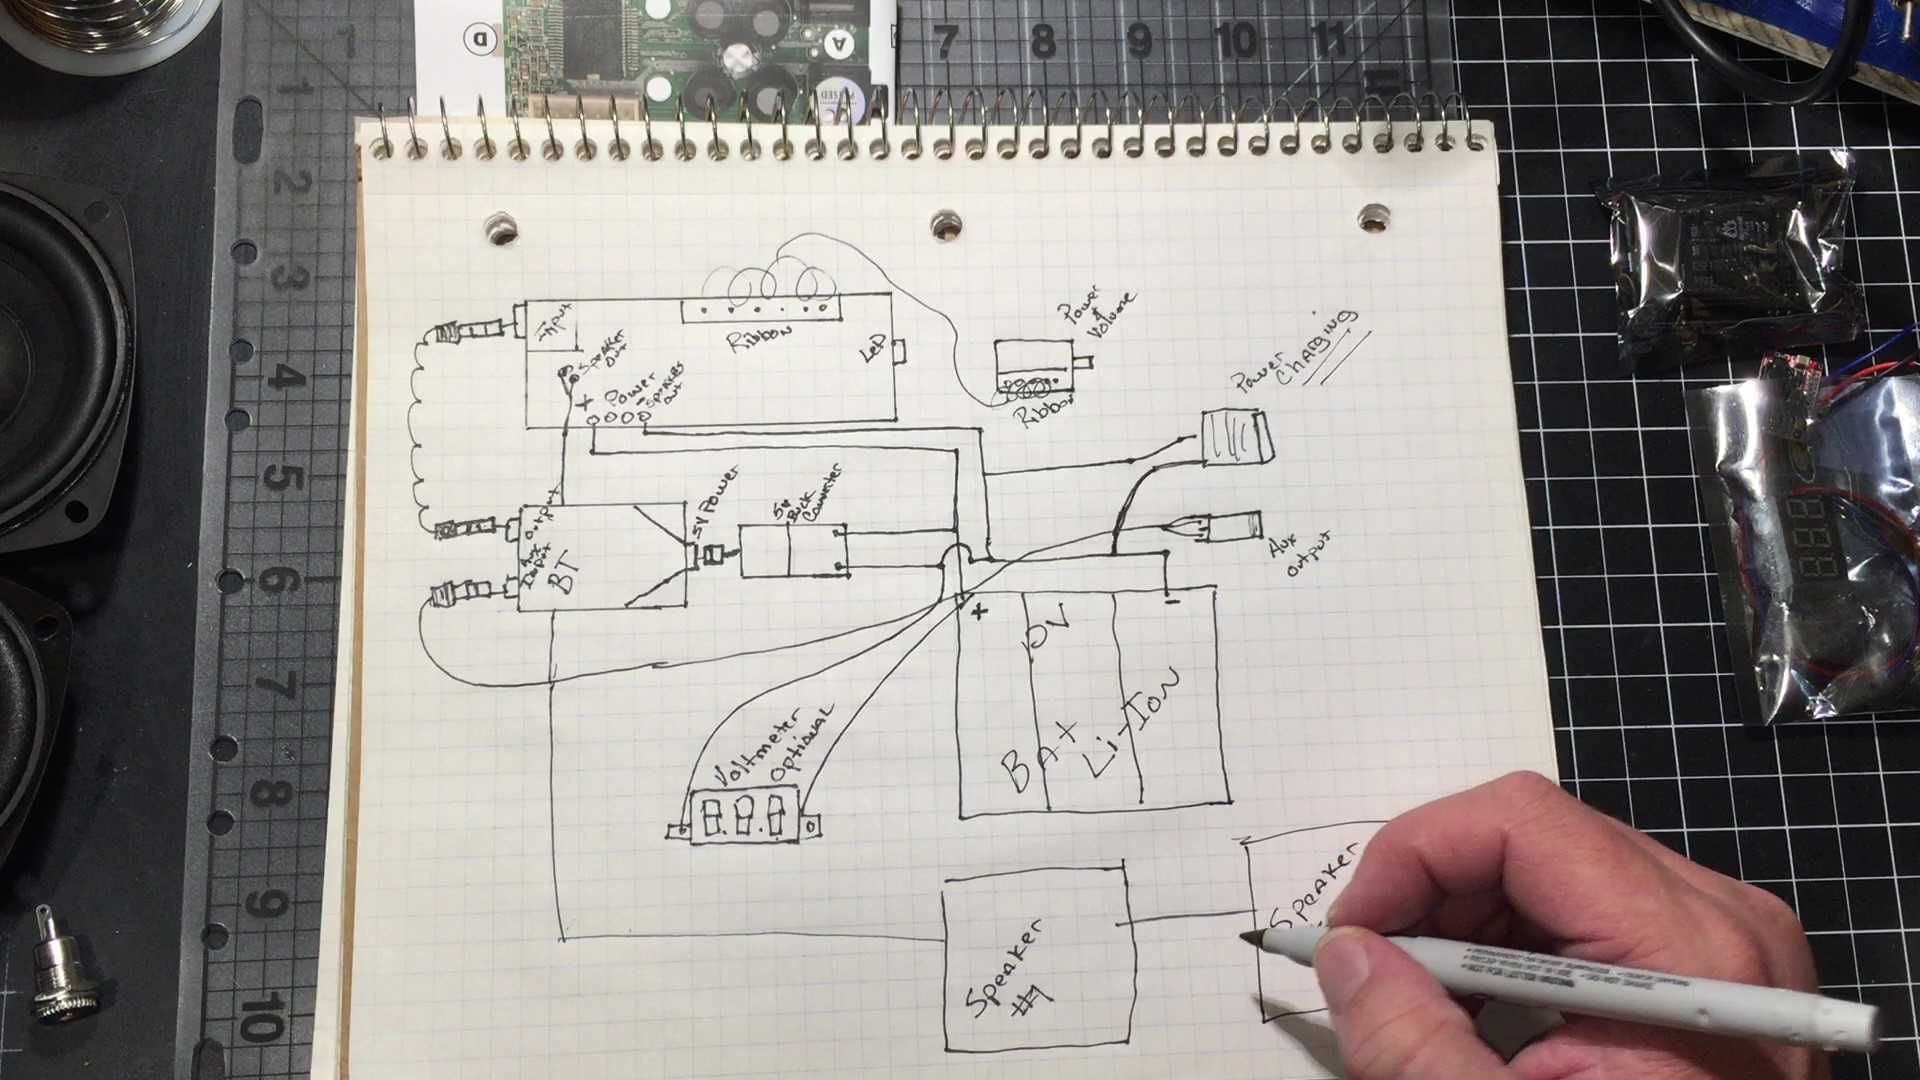 D
A
7
8
9
10
11
1
2
3
4
5
6
7
8
9
10
Input
Speaker
out
+
Power
-
Ribbon
LED
Ribbon
Power
&
Volume
Power
Charging
Aux
Input
Output
BT
5V Power
5v
Buck
Converter
Aux
output
+
-
Bat
Li-Ion
Voltmeter
Optional
8.8.8
Speaker
#1
Speaker